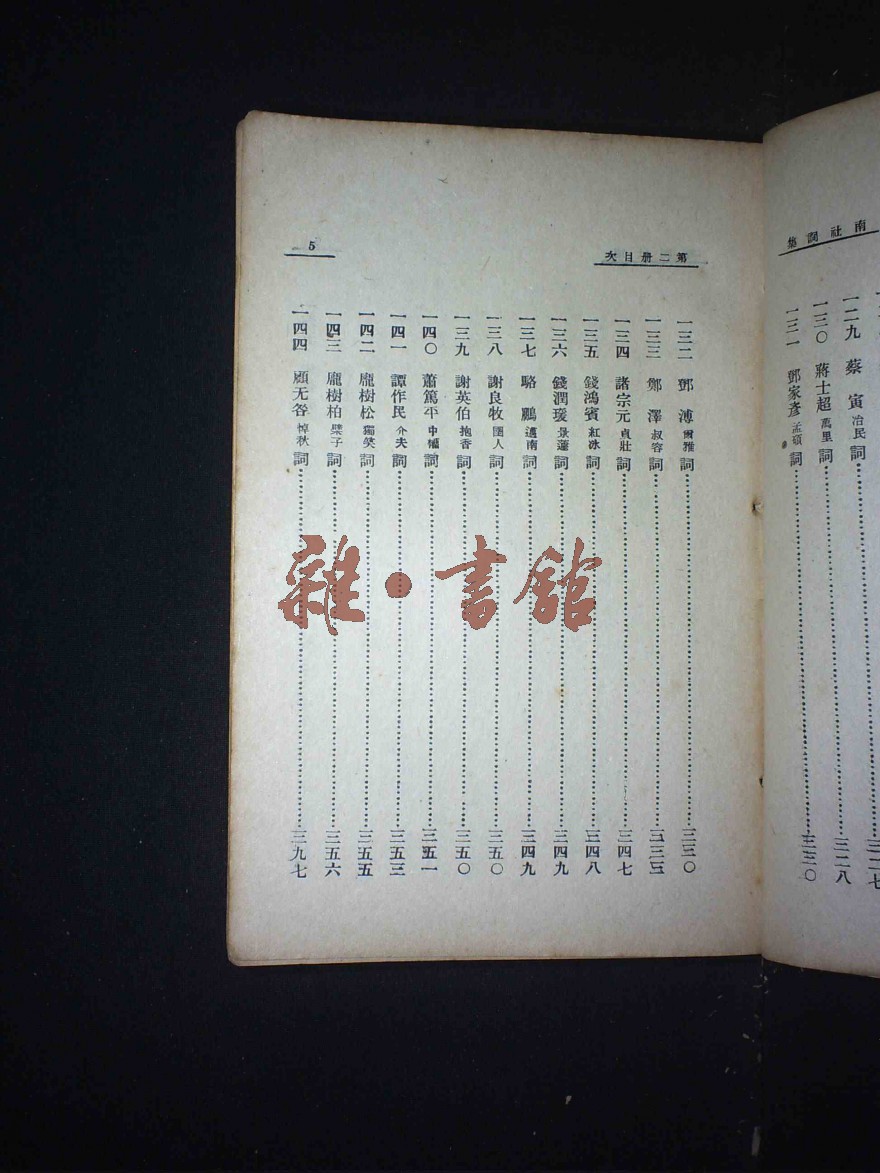 南社詞集
一二九 蔡寅 冶民 詞……三二七
一三〇 蔣士超 萬里 詞……三二八
一三一 鄧家彥 孟碩 詞……三三〇
第二册目次
一三二 鄧溥 爾雅 詞……三三〇
一三三 鄭澤 叔容 詞……三三三
一三四 諸宗元 貞壯 詞……三四七
一三五 錢鴻賓 紅冰 詞……三四八
一三六 錢潤瑗 景蘧 詞……三四九
一三七 駱鵬 邁南 詞……三四九
一三八 謝良牧 詞……三五〇
一三九 謝英伯 抱香 詞……三五〇
一四〇 蕭篤平 中權 詞……三五一
一四一 譚作民 介夫 詞……三五三
一四二 龐樹松 獨笑 詞……三五五
一四三 龐樹柏 檗子 詞……三五六
一四四 顧无咎 悼秋 詞……三九七
5
雜·書館